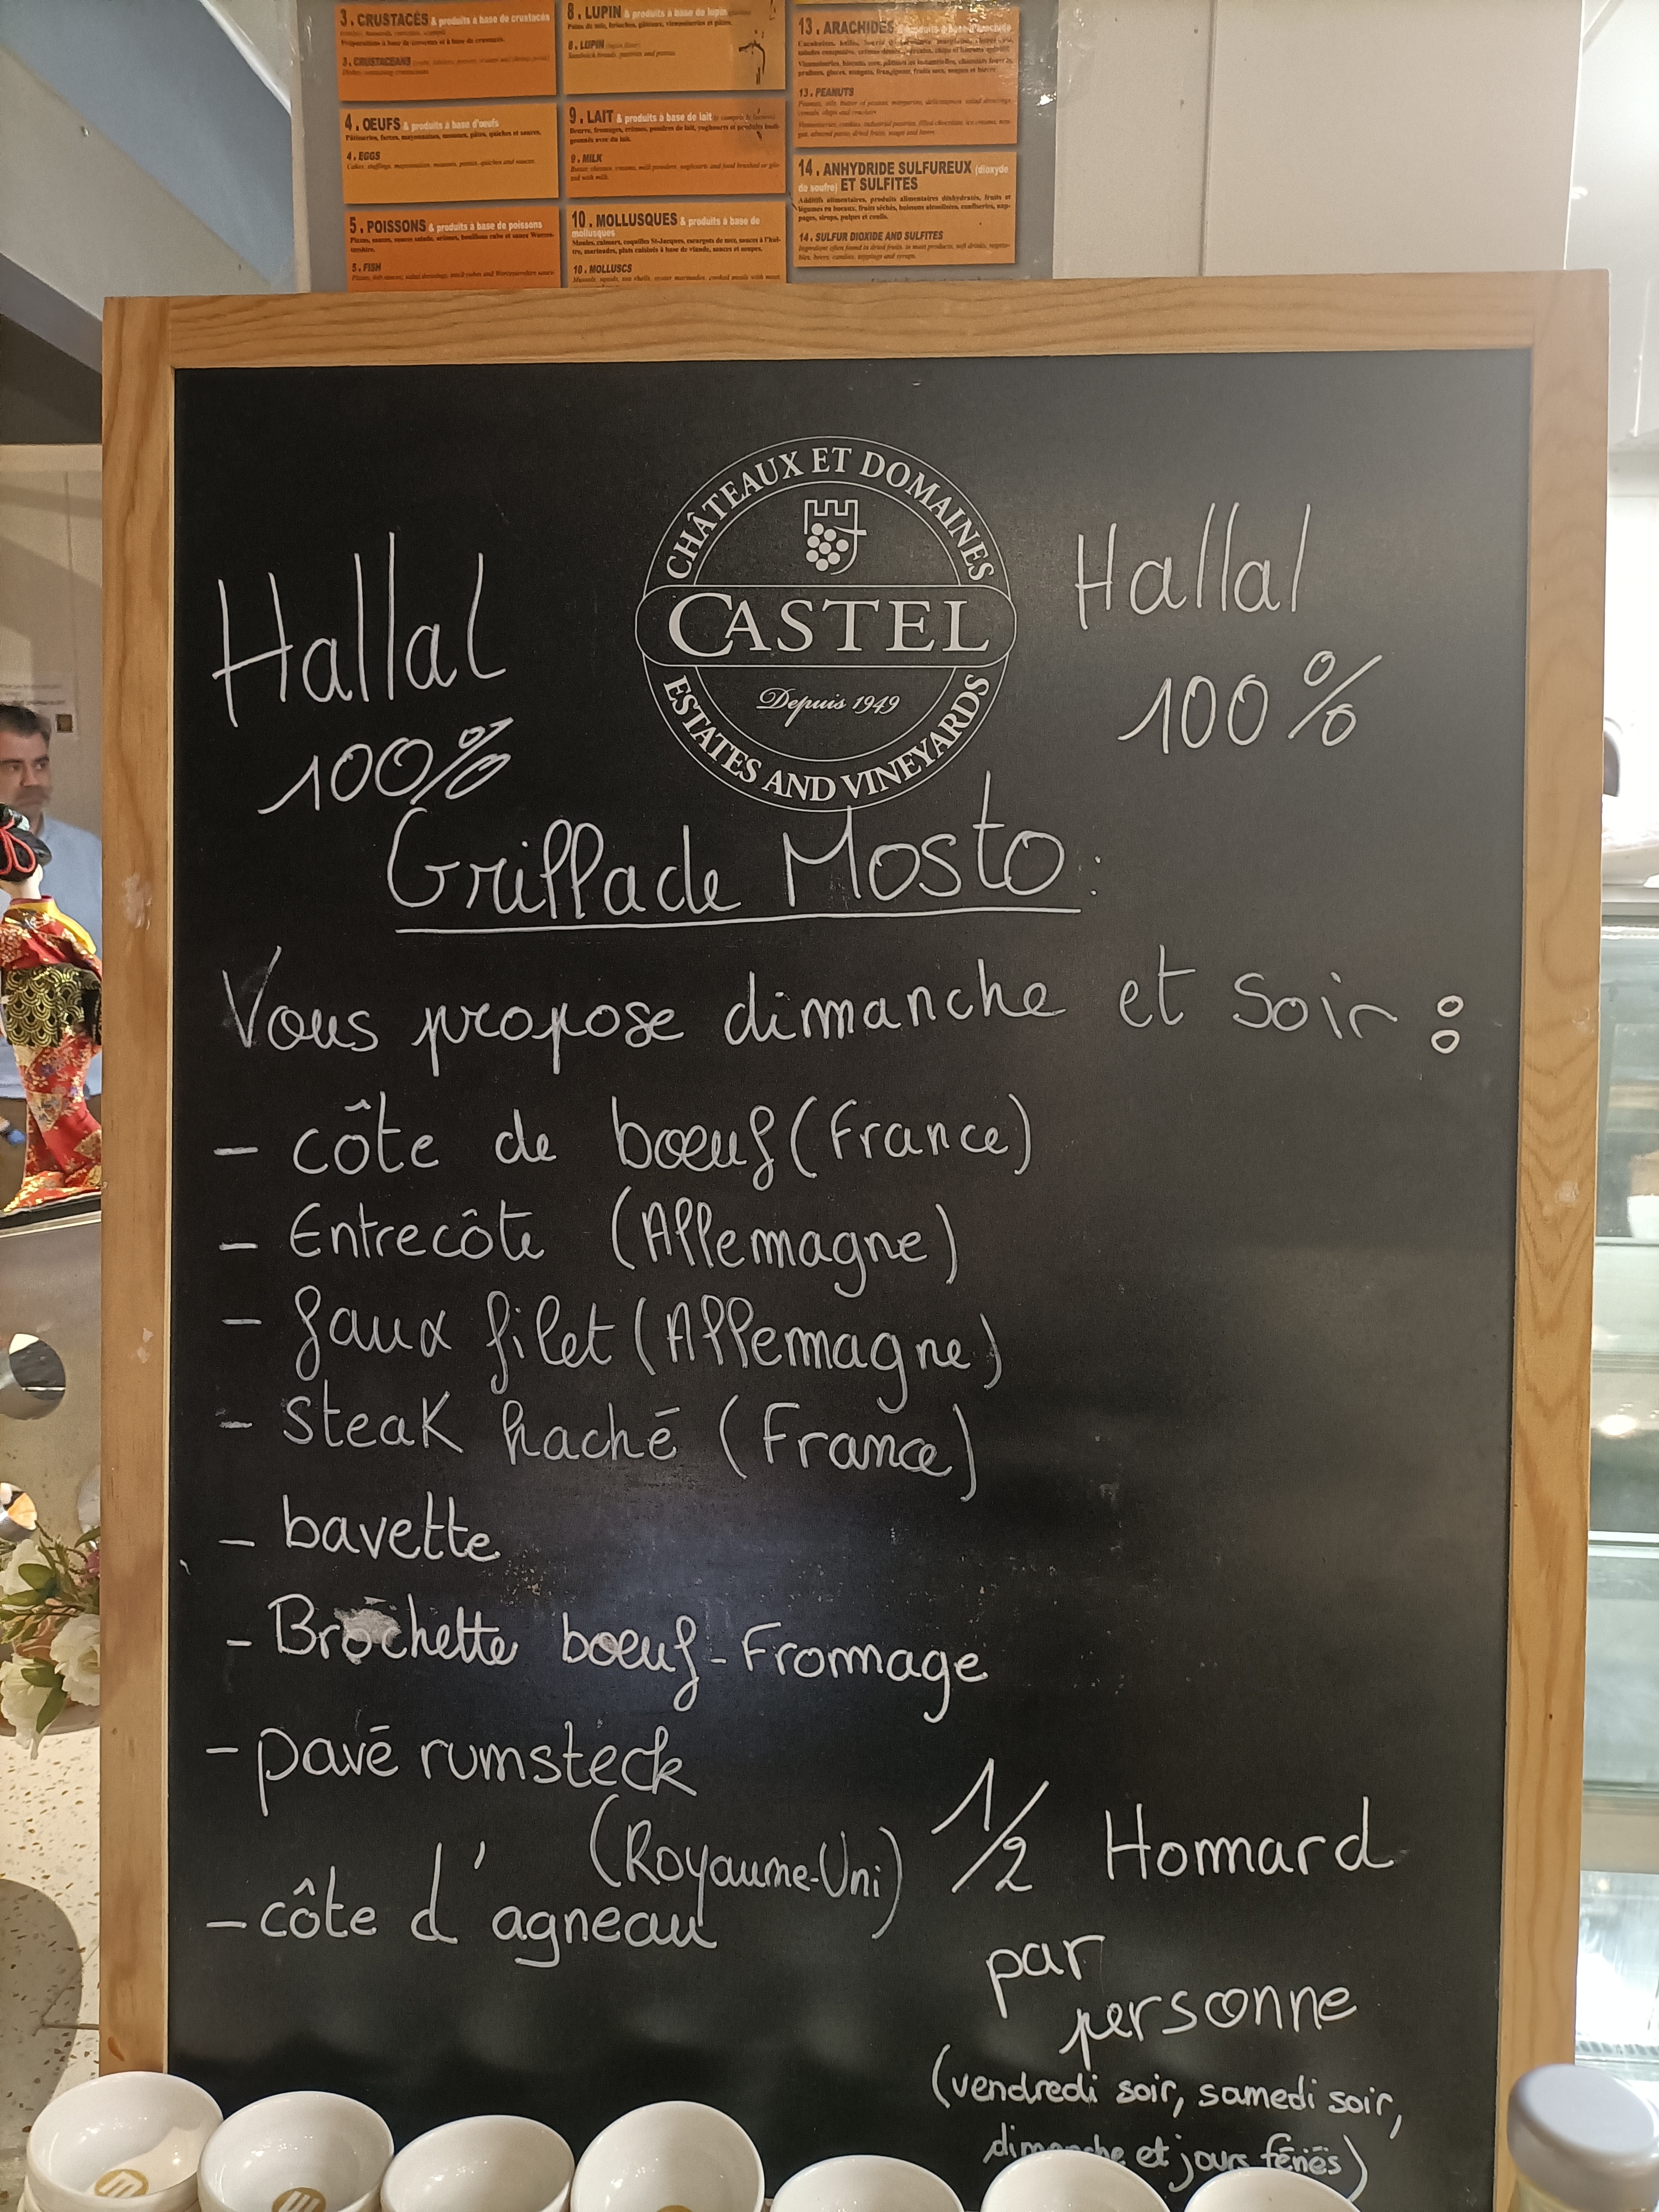 3. CRUSTACÉS & produits à base de crustacés
3. CRUSTACEANS
4. OEUFS & produits à base d'oeufs
Pâtisseries, farces, mayonnaises, mousses, pâtes, quiches et sauces.
4. EGGS
5. POISSONS & produits à base de poissons
5. FISH
8. LUPIN & produits à base de lupin
8. LUPIN
9. LAIT & produits à base de lait
9. MILK
10. MOLLUSQUES & produits à base de
mollusques
10. MOLLUSCS
13. ARACHIDES
13. PEANUTS
14. ANHYDRIDE SULFUREUX (dioxyde
de soufre) ET SULFITES
14. SULFUR DIOXIDE AND SULFITES
CHÂTEAUX ET DOMAINES
CASTEL
Depuis 1949
ESTATES AND VINEYARDS
Hallal
100%
Hallal
100%
Grillade Mosto:
Vous propose dimanche et Soir :
- côte de bœuf (France)
- Entrecôte (Allemagne)
- faux filet (Allemagne)
- Steak haché (France)
- bavette
- Brochette bœuf-Fromage
- pavé rumsteck
(Royaume-Uni)
- côte d'agneau
1/2 Hommard
par
personne
(vendredi soir, samedi soir,
dimanche et jours fériés)